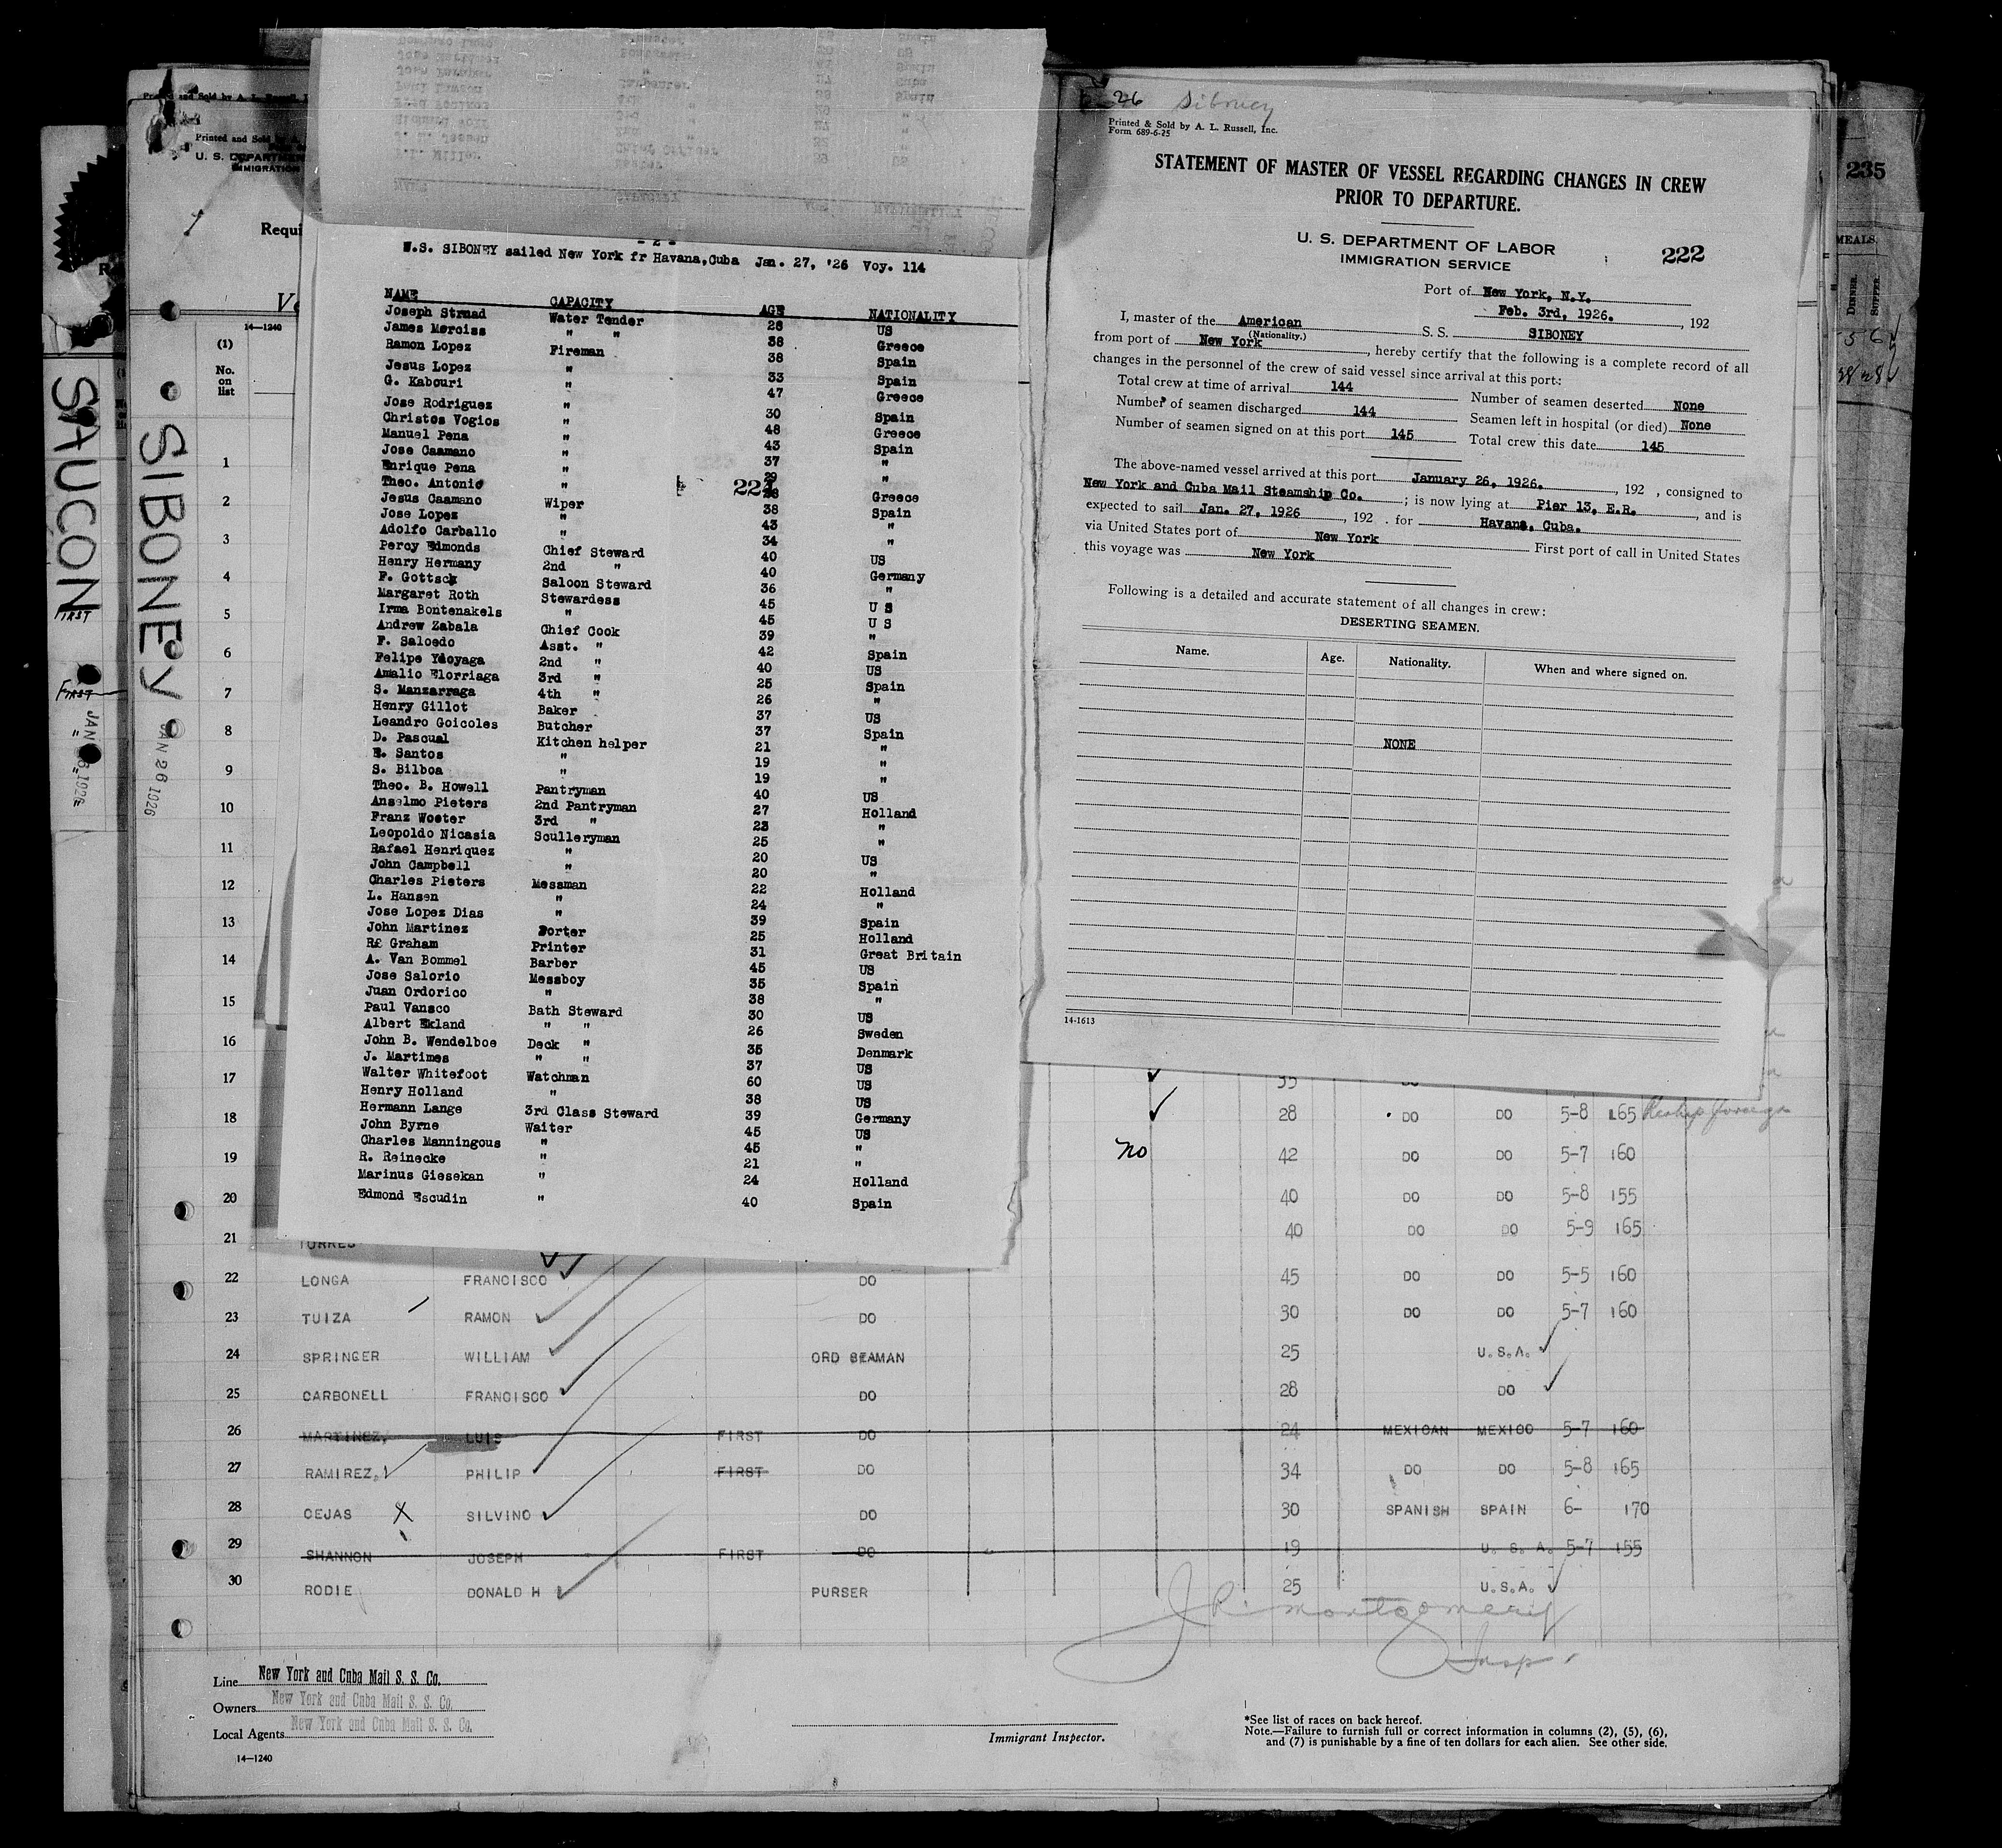 SAUCON
FIRST
FIRST
JAN 26 1926
SIBONEY
JAN 26 1926
Printed and Sold by A. L. Russell,
Printed and Sold
U. S. DEPARTMEN
IMMIGRATION
Requi
14—1240
(1)
No.
on
list
1
2
3
4
5
6
7
8
9
10
11
12
13
14
15
16
17
18
19
20
- 2 -
W.S. SIBONEY sailed New York fr Havana,Cuba Jan. 27, '26 Voy. 114
NAME CAPACITY AGE NATIONALITY
Joseph Strnad Water Tender 28 US
James Merciss " " 38 Greece
Ramon Lopez Fireman 38 Spain
Jesus Lopez " 33 Spain
G. Kabouri " 47 Greece
Jose Rodriguez " 30 Spain
Christos Vogios " 48 Greece
Manuel Pena " 43 Spain
Jose Caamano " 37 "
Enrique Pena " 29 "
Theo. Antonio " 38 Greece
221
Jesus Caamano Wiper 38 Spain
Jose Lopez " 43 "
Adolfo Carballo " 34 "
Percy Edmonds Chief Steward 40 US
Henry Hermany 2nd " 40 Germany
F. Gottsck Saloon Steward 36 "
Margaret Roth Stewardess 45 U S
Irma Bontenakels " 45 U S
Andrew Zabala Chief Cook 39 "
F. Salcedo Asst. " 42 Spain
Felipe Ydoyaga 2nd " 40 US
Amalio Elorriaga 3rd " 25 Spain
S. Manzarraga 4th " 26 "
Henry Gillot Baker 37 US
Leandro Goicoles Butcher 37 Spain
D. Pascual Kitchen helper 21 "
E. Santos " 19 "
S. Bilboa " 19 "
Theo. B. Howell Pantryman 40 US
Anselmo Pieters 2nd Pantryman 27 Holland
Franz Woster 3rd " 23 "
Leopoldo Nicasia Sculleryman 25 "
Rafael Henriquez " 20 US
John Campbell " 20 "
Charles Pieters Messman 22 Holland
L. Hansen " 24 "
Jose Lopez Dias " 39 Spain
John Martinez Porter 25 Holland
R£ Graham Printer 31 Great Britain
A. Van Bommel Barber 45 US
Jose Salorio Messboy 35 Spain
Juan Ordorico " 38 "
Paul Vansco Bath Steward 30 US
Albert Ekland " " 26 Sweden
John B. Wendelboe Deck " 35 Denmark
J. Martimes " " 37 US
Walter Whitefoot Watchman 60 US
Henry Holland " 38 US
Hermann Lange 3rd Class Steward 39 Germany
John Byrne Waiter 45 US
Charles Manningous " 45 "
R. Reinecke " 21 "
Marinus Giesekan " 24 Holland
Edmond Escudin " 40 Spain
26 Siboney
Printed & Sold by A. L. Russell, Inc.
Form 689-6-25
STATEMENT OF MASTER OF VESSEL REGARDING CHANGES IN CREW
PRIOR TO DEPARTURE.
U. S. DEPARTMENT OF LABOR
IMMIGRATION SERVICE
222
Port of New York, N.Y.
Feb. 3rd, 1926. , 192
I, master of the American S. S. SIBONEY
(Nationality.)
from port of New York , hereby certify that the following is a complete record of all
changes in the personnel of the crew of said vessel since arrival at this port:
Total crew at time of arrival 144 Number of seamen deserted None
Number of seamen discharged 144 Seamen left in hospital (or died) None
Number of seamen signed on at this port 145 Total crew this date 145
The above-named vessel arrived at this port January 26, 1926. , 192 , consigned to
New York and Cuba Mail Steamship Co. ; is now lying at Pier 13, E.R. , and is
expected to sail Jan. 27, 1926 , 192 . for Havana, Cuba.
via United States port of New York First port of call in United States
this voyage was New York
Following is a detailed and accurate statement of all changes in crew:
DESERTING SEAMEN.
Name. Age. Nationality. When and where signed on.
NONE
14-1613
235
MEALS.
DINNER.
SUPPER.
5 6
28
35
28 DO DO 5-8 165
no 42 DO DO 5-7 160
40 DO DO 5-8 155
21 TORRES 40 DO DO 5-9 165
22 LONGA FRANCISCO DO 45 DO DO 5-5 160
23 TUIZA RAMON DO 30 DO DO 5-7 160
24 SPRINGER WILLIAM ORD SEAMAN 25 U.S.A.
25 CARBONELL FRANCISCO DO 28 DO
26 MARTINEZ, LUIS FIRST DO 24 MEXICAN MEXICO 5-7 160
27 RAMIREZ, PHILIP FIRST DO 34 DO DO 5-8 165
28 CEJAS X SILVINO DO 30 SPANISH SPAIN 6- 170
29 SHANNON JOSEPH FIRST DO 19 U. S. A. 5-7 155
30 RODIE DONALD H PURSER 25 U.S.A.
J R Montgomery
Insp.
Line New York and Cuba Mail S. S. Co.
Owners New York and Cuba Mail S. S. Co.
Local Agents New York and Cuba Mail S. S. Co.
14—1240
Immigrant Inspector.
*See list of races on back hereof.
Note.—Failure to furnish full or correct information in columns (2), (5), (6),
and (7) is punishable by a fine of ten dollars for each alien. See other side.